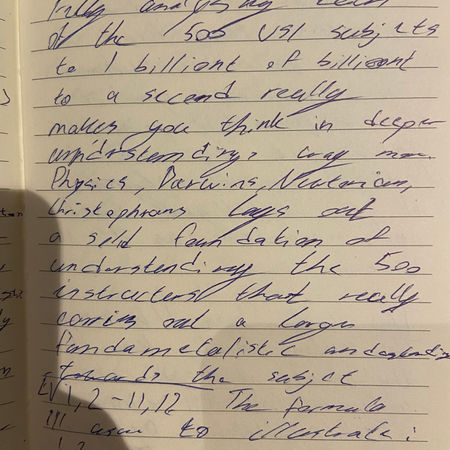 Fully analysing each
of the 500 VSI subjects
to 1 billiont of billiont
to a second really
makes you think in deeper
understanding, way more.
Physics, Darwins, Newtonian,
lays out
a solid foundation of
understanding the 500
instructers that really
carries out a larger
fundametalistic
towards the subject
1, 2-11, 12 The formula
to illustrate: